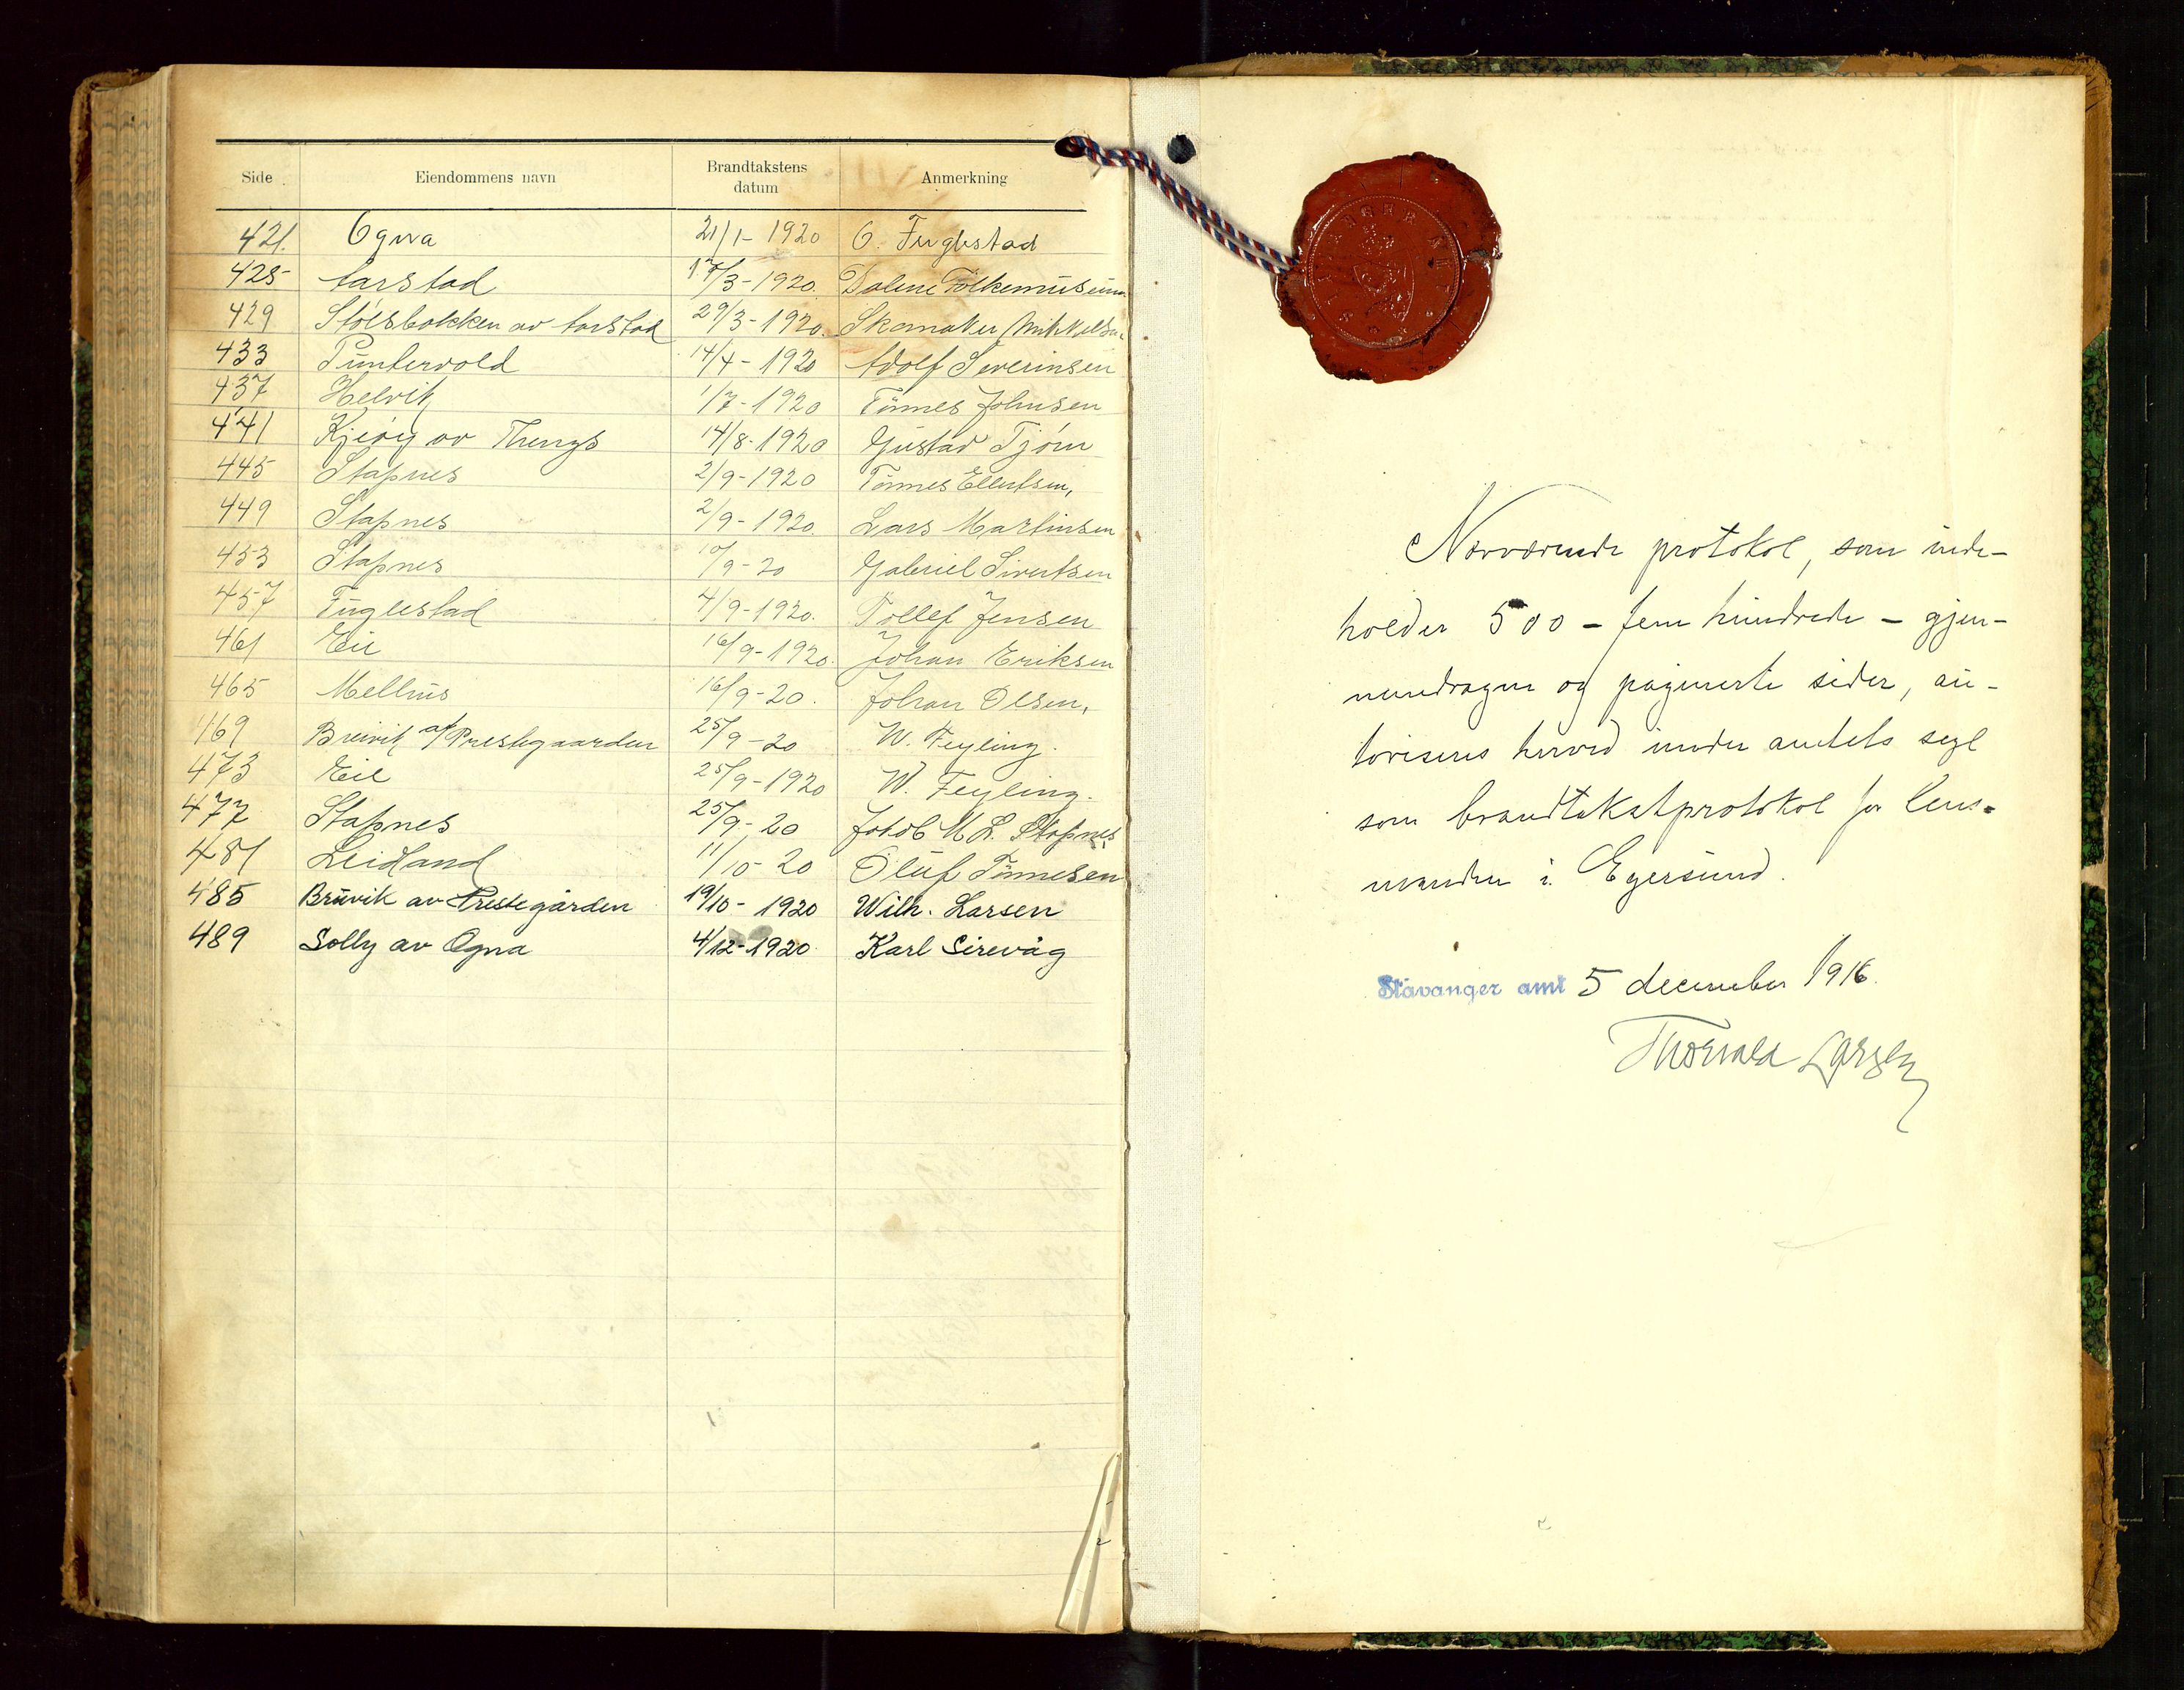 Side Eiendommens navn Brandtakstens datum Anmerkning
421. Ogna 21/1- 1920 O. Fuglestad
425 Aarstad 17/3-1920. Dalene Folkemuseum
429 Stølsbakken av Aarstad 29/3-1920. Skomaker Mikkelsen
433 Puntervold 14/4-1920 Adolf Severinsen
437 Helvik 1/7-1920 Tönnes Johnsen
441 av Thengs 14/8-1920 Gustav Tjörn
445 Stapnes 2/9-1920 Tönnes Ellertsen,
449 Stapnes 2/9-1920. Lars Martinsen
453 Stapnes 10/9-20 Gabriel Sivertsen
457 Fuglestad 4/9-1920. Tollef Jensen
461 Eie 16/9-1920. Johan Eriksen
465 Mellus 16/9-20. Johan Olsen,
469 Breivik af Prestegaarden 25/9-20 W. Feyling.
473 Eie 25/9-1920 W. Feyling.
477 Stapnes 25/9-20 Jakob M L. Stapnes
481 Leidland 11/10-20 Oluf Tönnesen
485 Bruvik av Prestegården 19/10-1920 Wilh. Larsen
489 Solly av Ogna 4/12-1920. Karl Sirevåg
STAVANGER AMT
Nærværende protokol, som inde-
holder 500 - fem hundrede - gjen-
nemdragne og paginerte sider, au-
toriseres herved under amtets segl
som brandtakstprotokol for lens-
manden i Egersund.
Stavanger amt 5 december 1916.
Thorvald Larsen